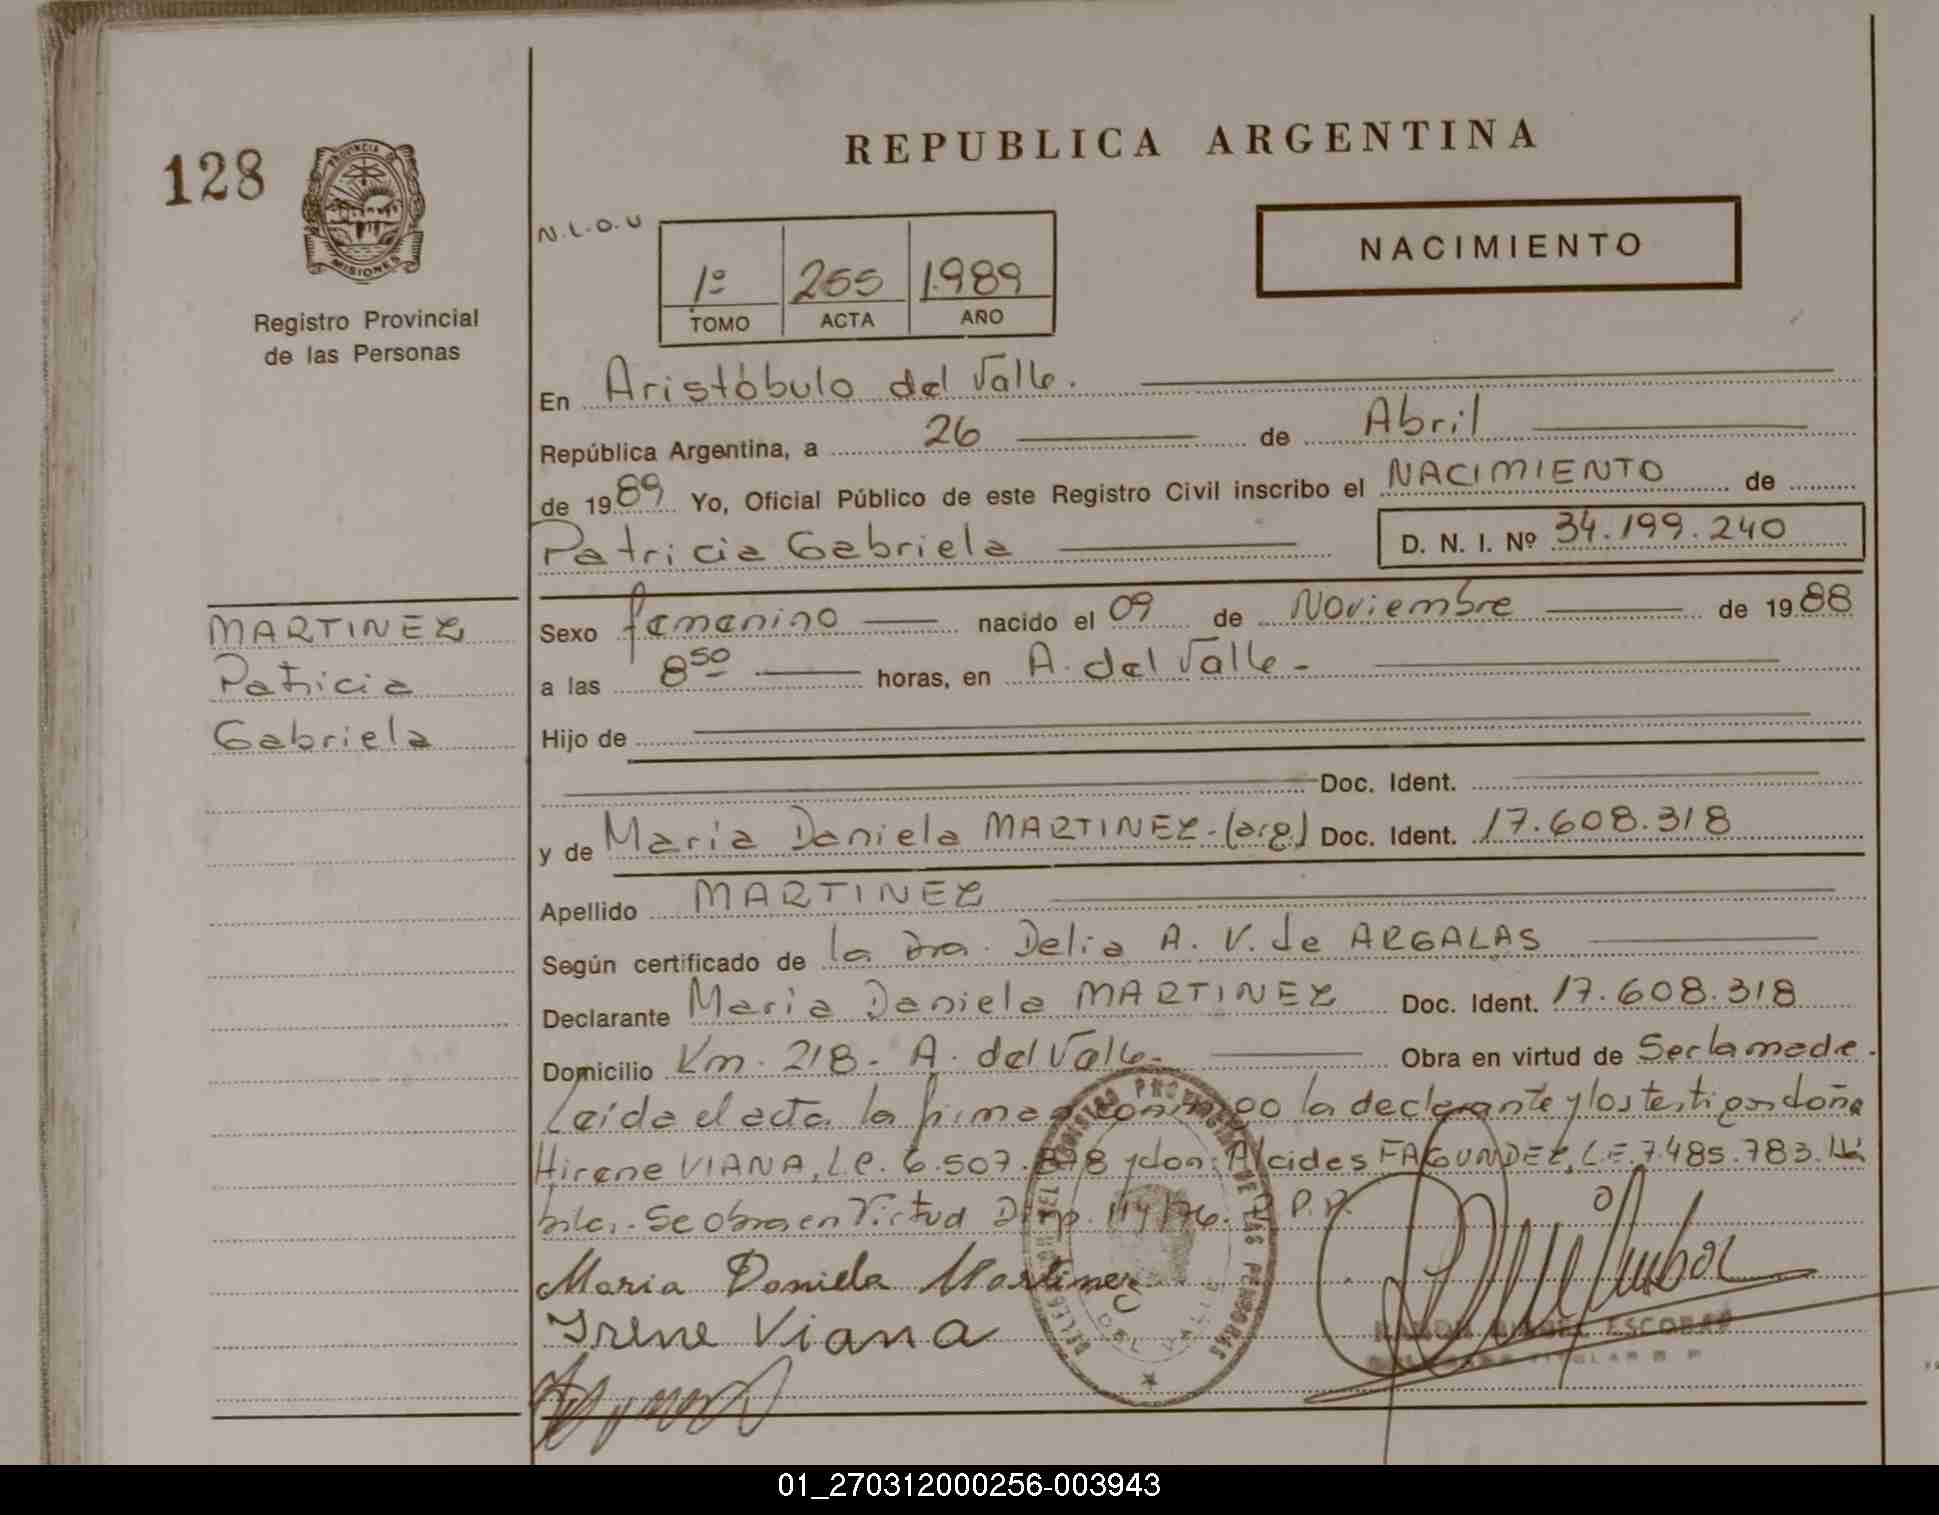 REPUBLICA ARGENTINA
128
PROVINCIA DE
MISIONES
Registro Provincial
de las Personas
N.L.O.U
1º 255 1.989
TOMO ACTA AÑO
NACIMIENTO
En Aristóbulo del Valle.
República Argentina, a 26 de Abril
de 1989 Yo, Oficial Público de este Registro Civil inscribo el NACIMIENTO de
Patricia Gabriela D. N. I. Nº 34.199.240
MARTINEZ
Patricia
Gabriela
Sexo femenino nacido el 09 de Noviembre de 1988
a las 8 50 horas, en A. del Valle-
Hijo de
Doc. Ident.
y de Maria Daniela MARTINEZ-(arg) Doc. Ident. 17.608.318
Apellido MARTINEZ
Según certificado de la Dra. Delia A. V. de ARGALAS
Declarante Maria Daniela MARTINEZ Doc. Ident. 17.608.318
Domicilio Km. 218- A. del Valle- Obra en virtud de Ser la madre.
Leida el acta la firman conmigo la declarante y los testigos doña
Hirene VIANA, L.C. 6.507.878 y don: Alcides FAGUNDEZ, L.E. 7.485.783. Há
biles. Se obra en Virtud Disp. 114/76. D.P.P.
Maria Daniela Martinez
Irene Viana
RAMON MIGUEL ESCOBAR
TITULAR R P
DEL REGISTRO PROVINCIAL DE LAS PERSONAS
DEL VALLE
01_270312000256-003943